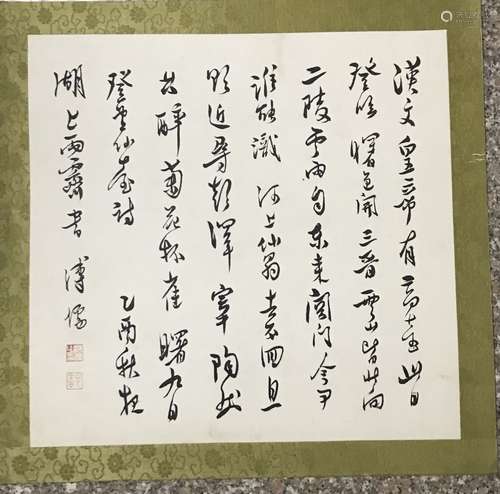 漢文皇帝有高臺此日
登臨曙色開三晉雲山皆北向
二陵風雨自東來關門令尹
誰能識河上仙翁去不回且
欲近尋彭澤宰陶然
共醉菊花杯崔曙九日
登望仙臺詩 乙酉秋夜
湖上雨霽書 溥儒